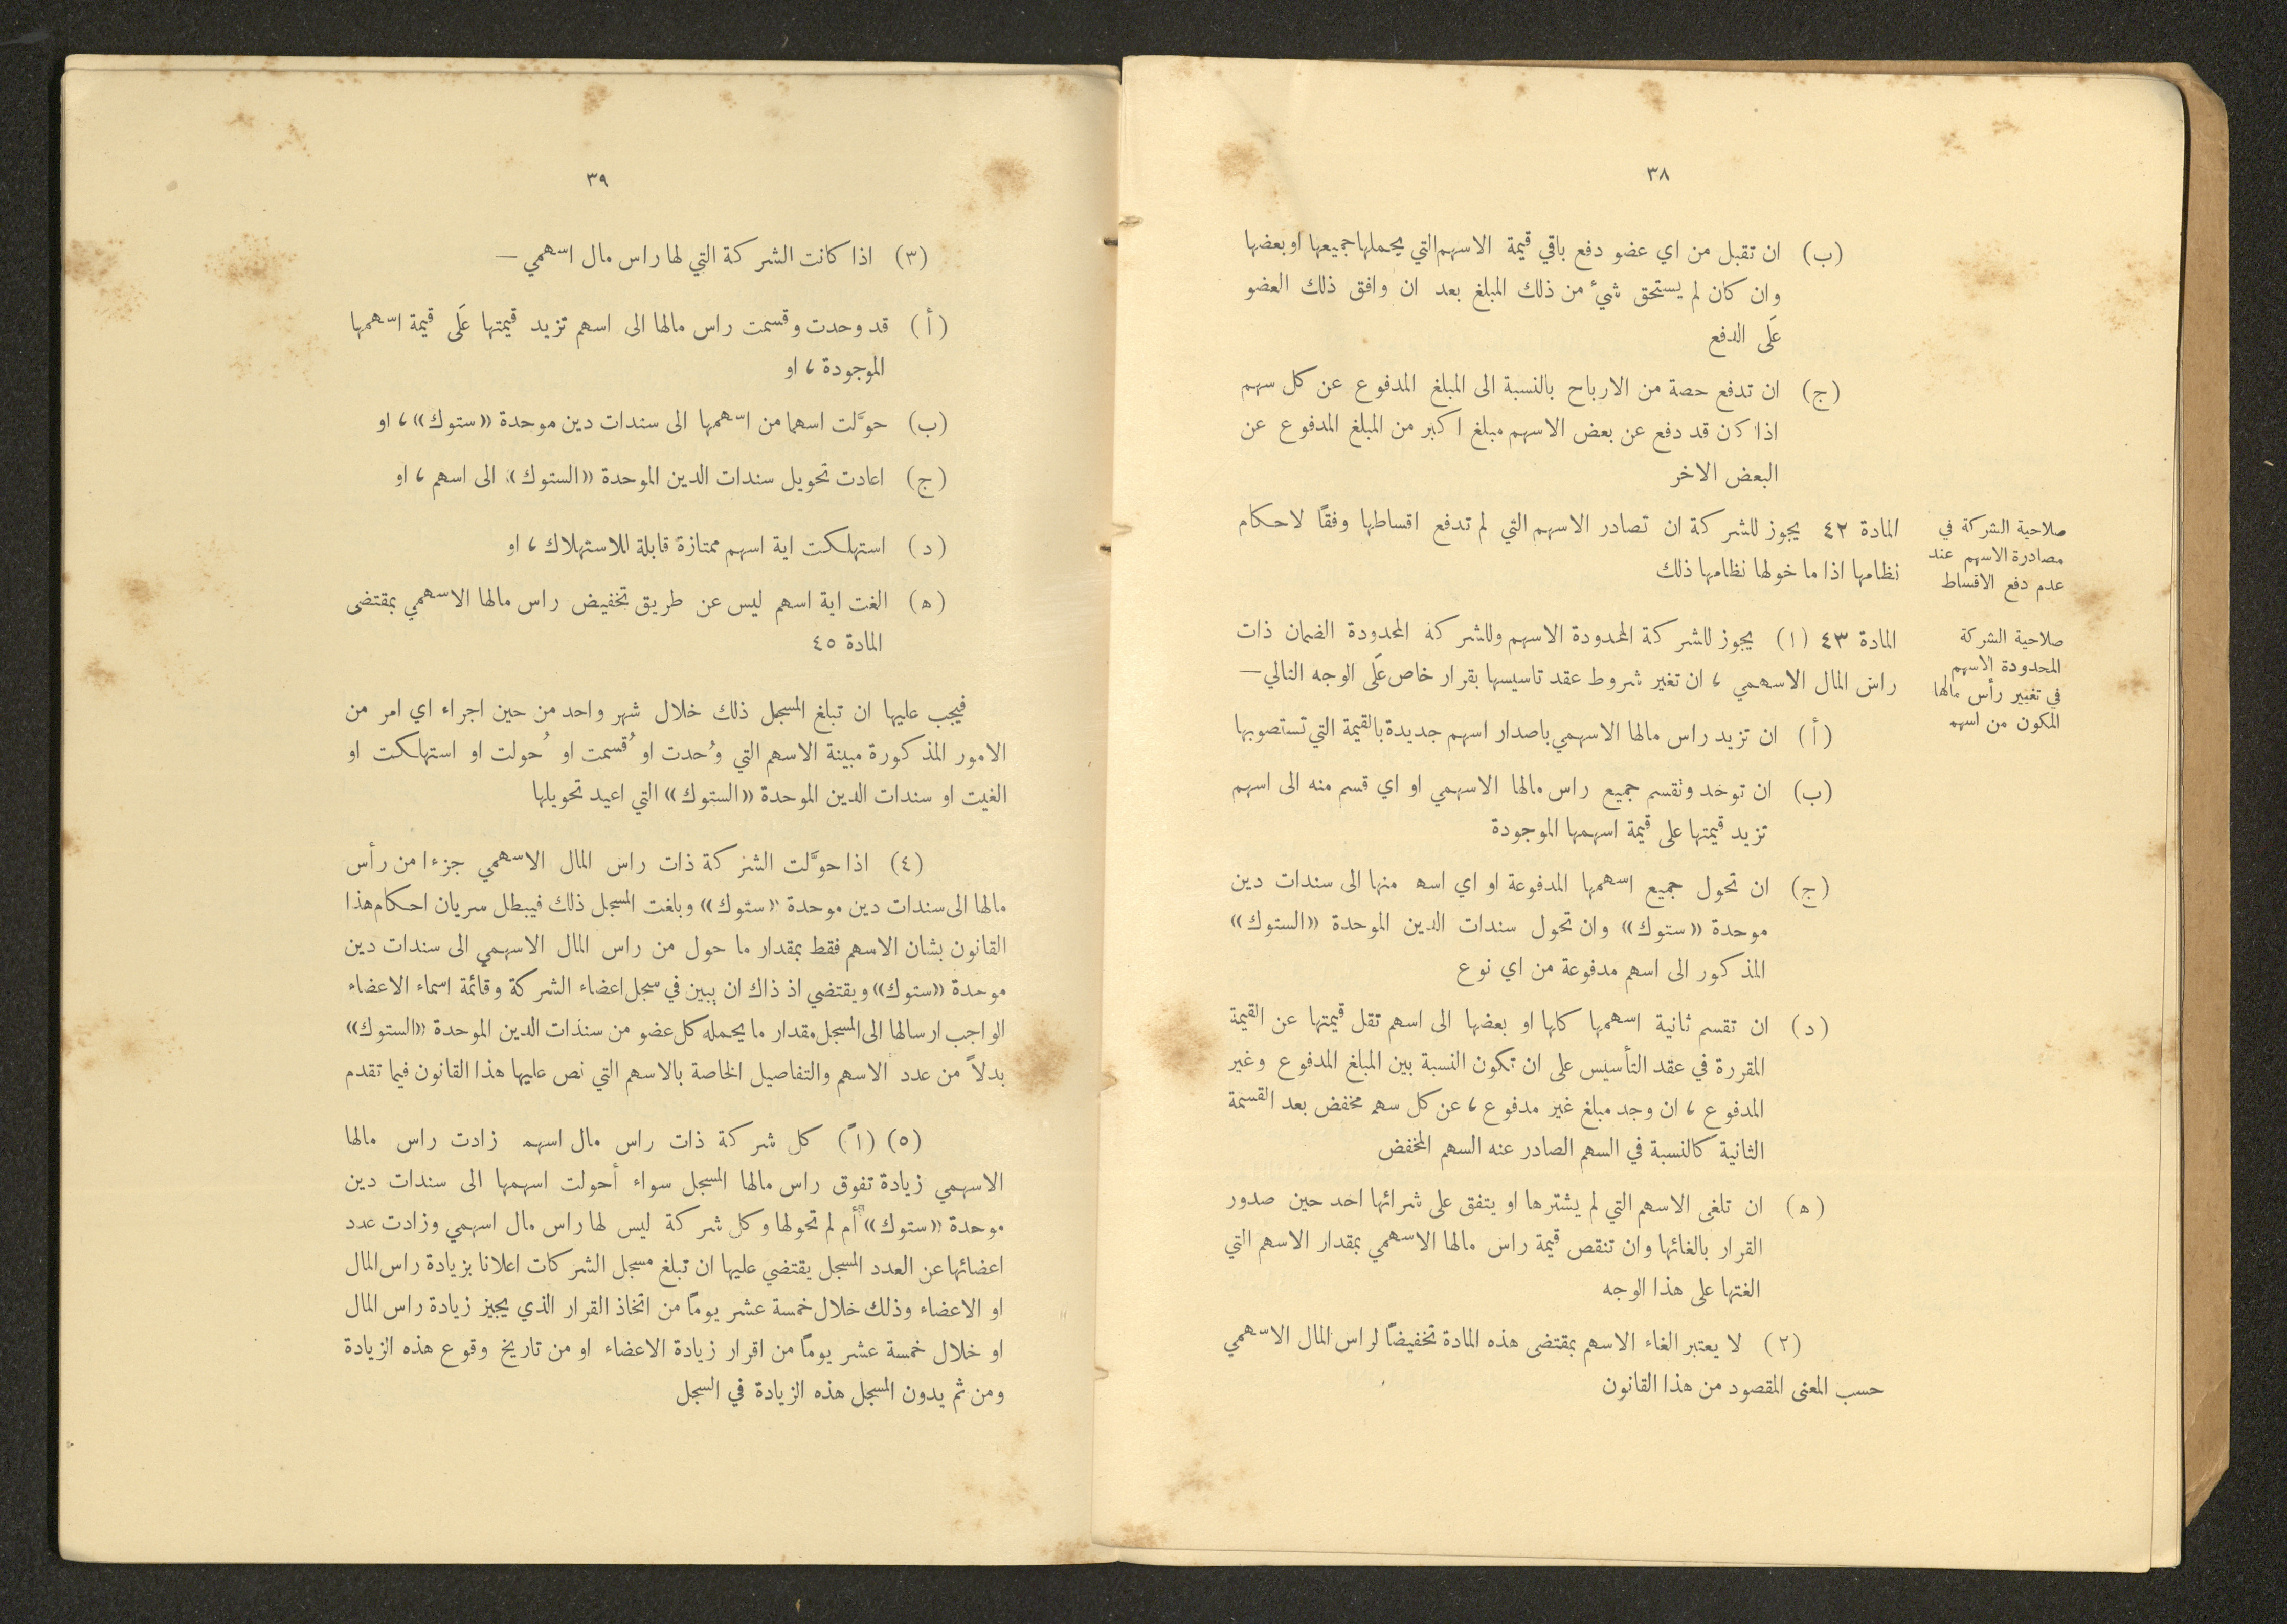 ٣٨
(ب) ان تقبل من اي عضو دفع باقي قيمة الاسهم التي يحملها جميعها او بعضها
وان كان لم يستحق شيء من ذلك المبلغ بعد ان وافق ذلك العضو
عَلَى الدفع
(ج) ان تدفع حصة من الارباح بالنسبة الى المبلغ المدفوع عن كل سهم
اذا كان قد دفع عن بعض الاسهم مبلغ اكبر من المبلغ المدفوع عن
البعض الاخر
صلاحية الشركة في
مصادرة الاسهم عند
عدم دفع الاقساط
المادة ٤٢ يجوز للشركة ان تصادر الاسهم التي لم تدفع اقساطها وفقًا لاحكام
نظامها اذا ما خولها نظامها ذلك
صلاحية الشركة
المحدودة الاسهم
في تغيير رأس مالها
المكون من اسهم
المادة ٤٣ (١) يجوز للشركة المحدودة الاسهم وللشركة المحدودة الضمان ذات
راس المال الاسهمي ، ان تغير شروط عقد تاسيسها بقرار خاص عَلَى الوجه التالي —
(أ) ان تزيد راس مالها الاسهمي باصدار اسهم جديدة بالقيمة التي تستصوبها
(ب) ان توحد وتقسم جميع راس مالها الاسهمي او اي قسم منه الى اسهم
تزيد قيمتها على قيمة اسهمها الموجودة
(ج) ان تحول جميع اسهمها المدفوعة او اي اسهم منها الى سندات دين
موحدة «ستوك» وان تحول سندات الدين الموحدة «الستوك»
المذكور الى اسهم مدفوعة من اي نوع
(د) ان تقسم ثانية اسهمها كلها او بعضها الى اسهم تقل قيمتها عن القيمة
المقررة في عقد التأسيس على ان تكون النسبة بين المبلغ المدفوع وغير
المدفوع ، ان وجد مبلغ غير مدفوع ، عن كل سهم مخفض بعد القسمة
الثانية كالنسبة في السهم الصادر عنه السهم المخفض
(ه) ان تلغى الاسهم التي لم يشترها او يتفق على شرائها احد حين صدور
القرار بالغائها وان تنقص قيمة راس مالها الاسهمي بمقدار الاسهم التي
الغتها على هذا الوجه
(٢) لا يعتبر الغاء الاسهم بمقتضى هذه المادة تخفيضًا لراس المال الاسهمي
حسب المعنى المقصود من هذا القانون
٣٩
(٣) اذا كانت الشركة التي لها راس مال اسهمي —
(أ) قد وحدت وقسمت راس مالها الى اسهم تزيد قيمتها عَلَى قيمة اسهمها
الموجودة ، او
(ب) حوَّلت اسهما من اسهمها الى سندات دين موحدة «ستوك» ، او
(ج) اعادت تحويل سندات الدين الموحدة «الستوك» الى اسهم ، او
(د) استهلكت اية اسهم ممتازة قابلة للاستهلاك ، او
(ه) الغت اية اسهم ليس عن طريق تخفيض راس مالها الاسهمي بمقتضى
المادة ٤٥
فيجب عليها ان تبلغ المسجل ذلك خلال شهر واحد من حين اجراء اي امر من
الامور المذكورة مبينة الاسهم التي وُحدت او قُسمت او حُولت او استهلكت او
الغيت او سندات الدين الموحدة «الستوك» التي اعيد تحويلها
(٤) اذا حوَّلت الشركة ذات راس المال الاسهمي جزءا من رأس
مالها الى سندات دين موحدة «ستوك» وبلغت المسجل ذلك فيبطل سريان احكام هذا
القانون بشان الاسهم فقط بمقدار ما حول من راس المال الاسهمي الى سندات دين
موحدة «ستوك» ويقتضي اذ ذاك ان يبين في سجل اعضاء الشركة وقائمة اسماء الاعضاء
الواجب ارسالها الى المسجل مقدار ما يحمله كل عضو من سندات الدين الموحدة «الستوك»
بدلاً من عدد الاسهم والتفاصيل الخاصة بالاسهم التي نص عليها هذا القانون فيما تقدم
(٥) (١ً) كل شركة ذات راس مال اسهم زادت راس مالها
الاسهمي زيادة تفوق راس مالها المسجل سواء أحولت اسهمها الى سندات دين
موحدة «ستوك» أم لم تحولها وكل شركة ليس لها راس مال اسهمي وزادت عدد
اعضائها عن العدد المسجل يقتضي عليها ان تبلغ مسجل الشركات اعلانا بزيادة راس المال
او الاعضاء وذلك خلال خمسة عشر يومًا من اتخاذ القرار الذي يجيز زيادة راس المال
او خلال خمسة عشر يومًا من اقرار زيادة الاعضاء او من تاريخ وقوع هذه الزيادة
ومن ثم يدون المسجل هذه الزيادة في السجل